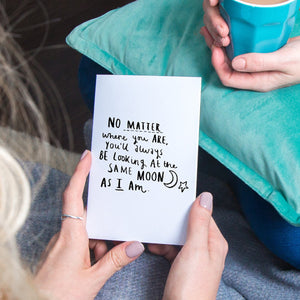 NO MATTER
where you ARE,
You'll always
BE Looking At the
SAME MOON
AS I AM.